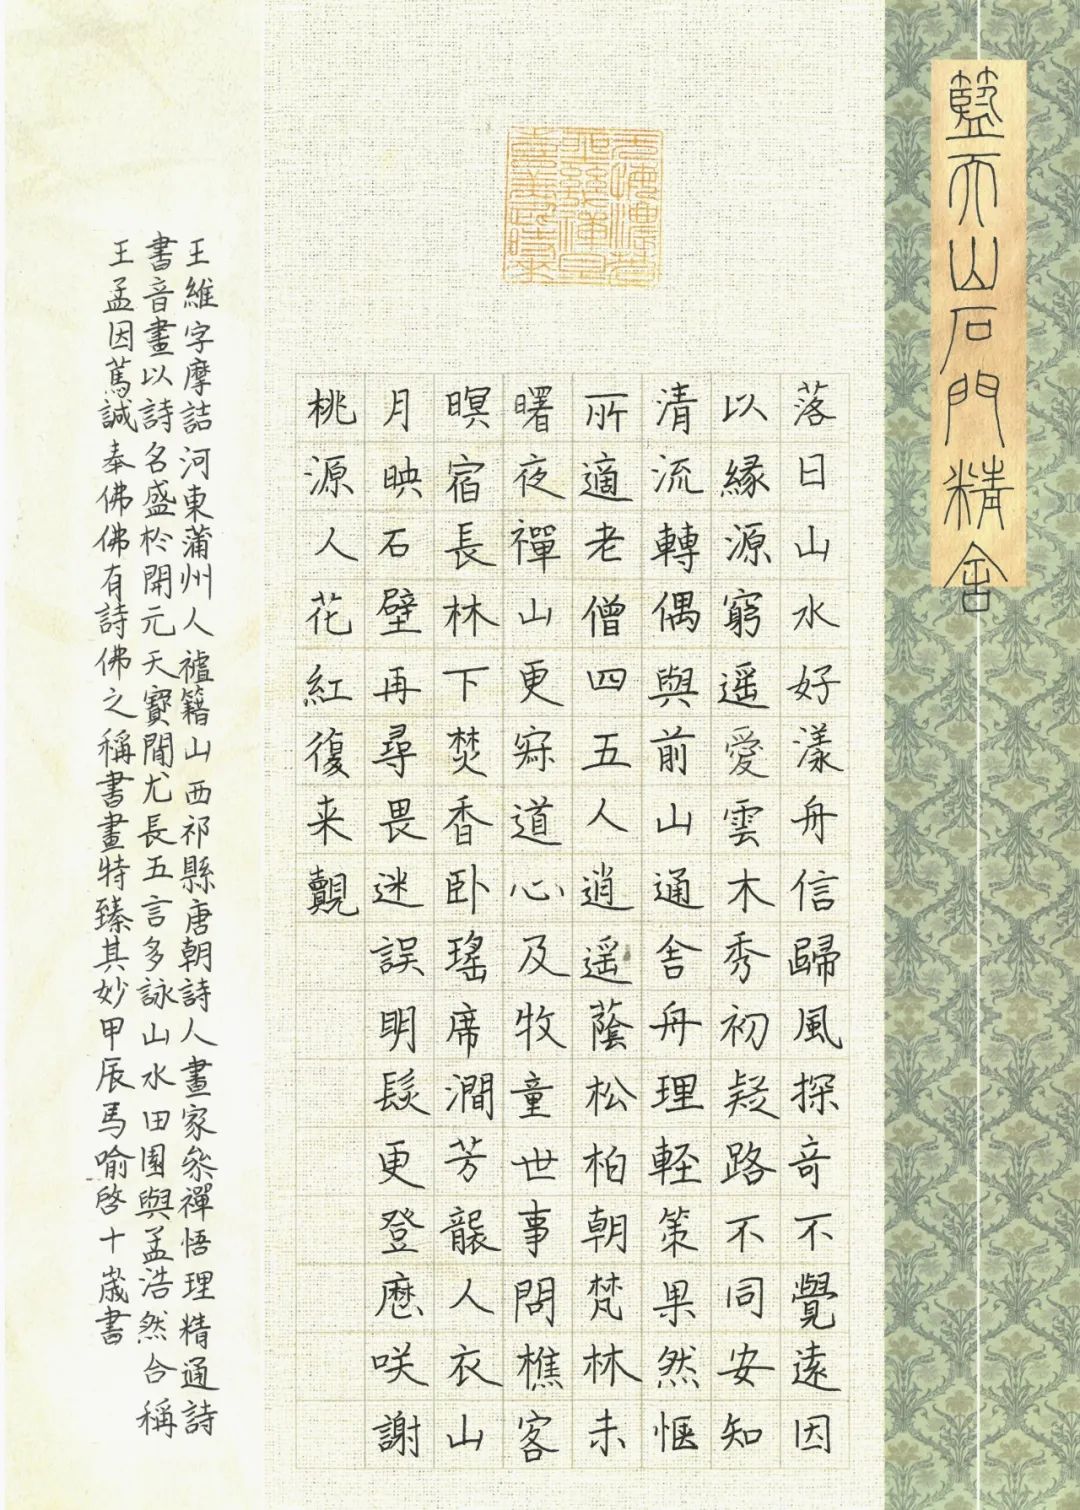 藍天山石門精舍
落日山水好漾舟信歸風探奇不覺遠因
以緣源窮遥愛雲木秀初疑路不同安知
清流轉偶與前山通舍舟理輕策果然愜
所適老僧四五人逍遥蔭松柏朝梵林未
曙夜禪山更寂道心及牧童世事問樵客
暝宿長林下焚香卧瑤席澗芳襲人衣山
月映石壁再尋畏迷誤明發更登歷咲謝
桃源人花紅復来覿
王維字摩詰河東蒲州人祖籍山西祁縣唐朝詩人畫家參禪悟理精通詩
書音畫以詩名盛於開元天寶間尤長五言多詠山水田園與孟浩然合稱
王孟因篤誠奉佛佛有詩佛之稱書畫特臻其妙甲辰馬喻啓十歲書